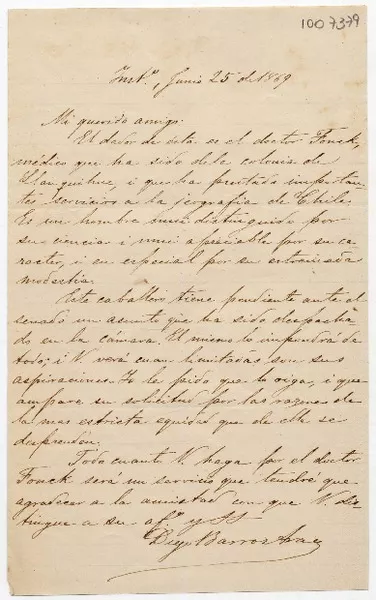 1007379
Inst.º, Junio 25 de 1869
Mi querido amigo:
El dador de ésta es el doctor Fonck,
médico que ha sido de la colonia de
Llanquihue, i que ha prestado importan-
tes servicios a la jeografía de Chile.
Es un hombre mui distinguido por
su ciencia i mui apreciable por su ca-
racter, i en especial por su estremada
modestia.
Este caballero tiene pendiente ante el
senado un asunto que ha sido despacha-
do en la cámara. El mismo lo impondrá de
todo; i V. verá cuan limitadas son sus
aspiraciones. Yo le pido que lo oiga, i que
ampare su solicitud por las razones de
la mas estricta equidad que de ella se
desprenden.
Todo cuanto V. haga por el doctor
Fonck será un servicio que tendré que
agradecer a la amistad con que V. dis-
tingue a su af.º y SS
Diego Barros Arana